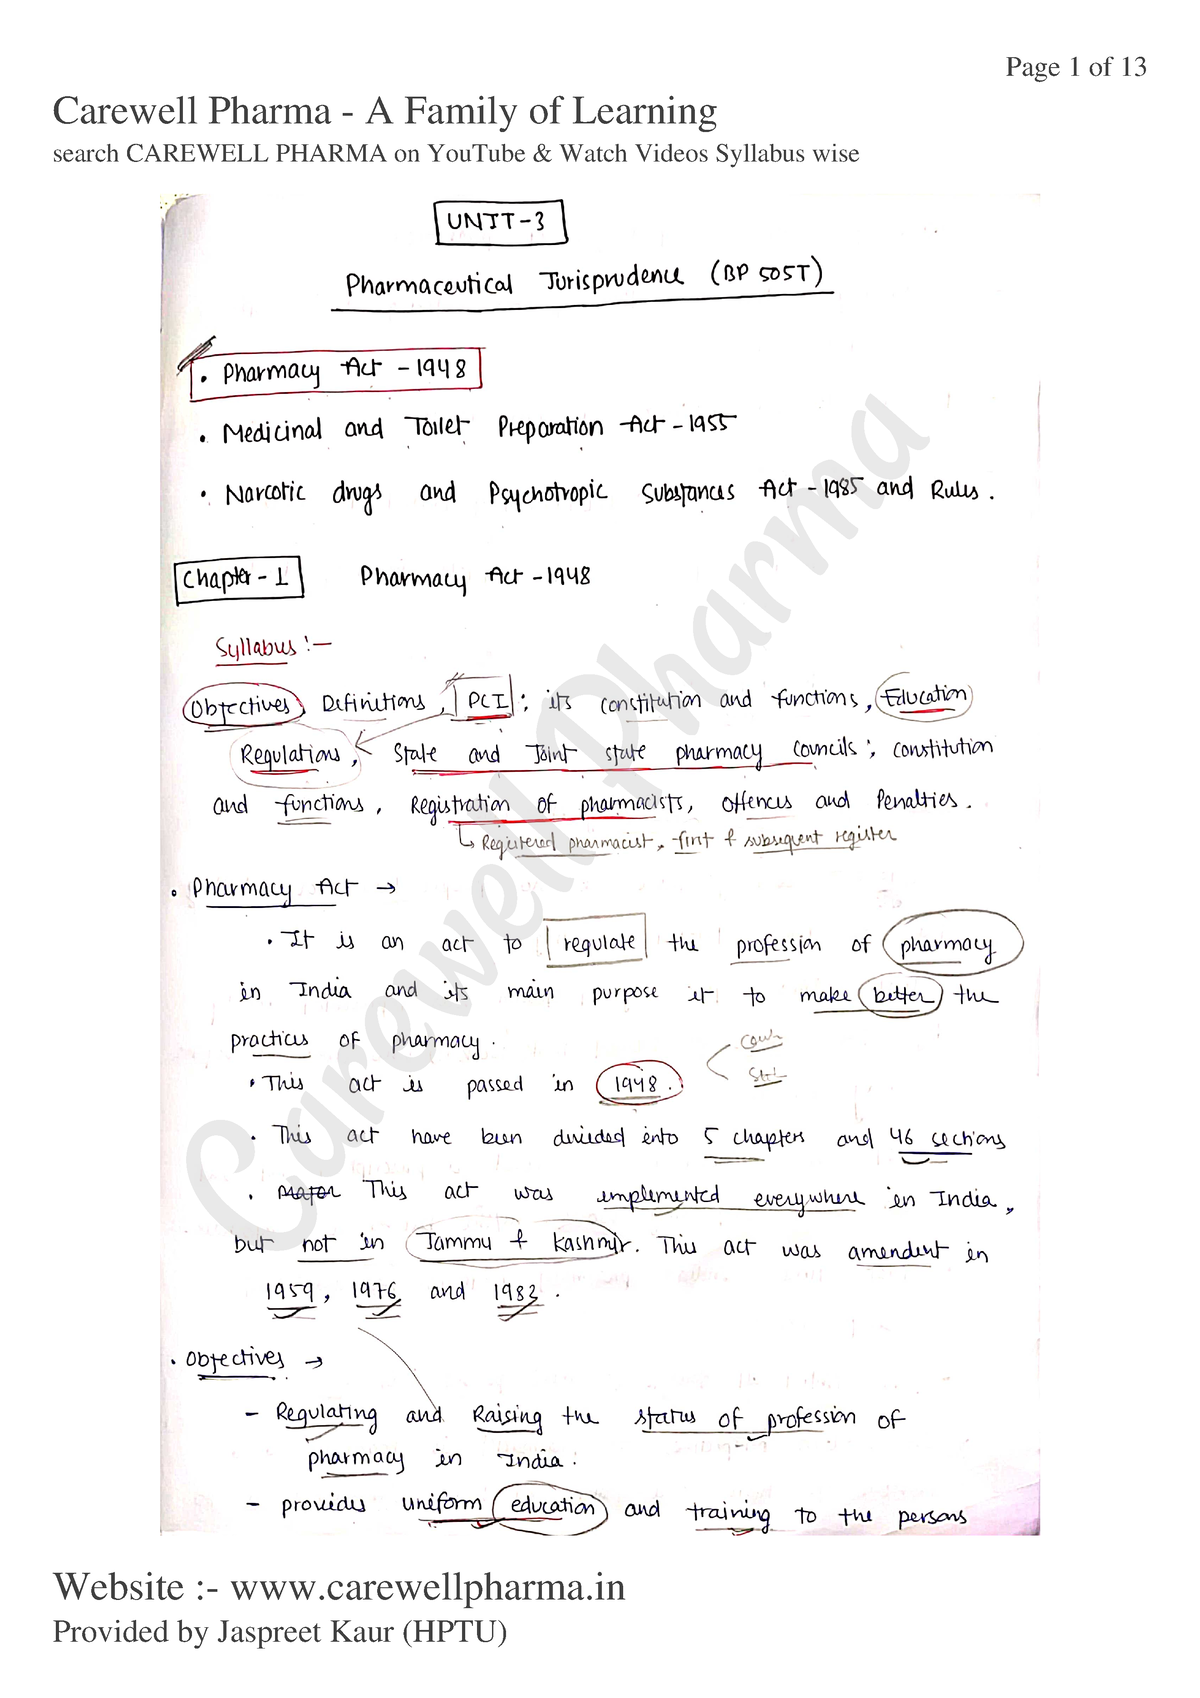 Page 1 of 13
Carewell Pharma - A Family of Learning
search CAREWELL PHARMA on YouTube & Watch Videos Syllabus wise
UNIT-3
Pharmaceutical Jurisprudence (BP 505T)
• Pharmacy Act - 1948
• Medicinal and Toilet Preparation Act - 1955
• Narcotic drugs and Psychotropic Substances Act - 1985 and Rules.
Chapter - 1 Pharmacy Act - 1948
Syllabus :-
Objectives, Definitions, PCI; its constitution and functions, Education
Regulations, State and Joint state pharmacy councils; constitution
and functions, Registration of pharmacists, offences and Penalties.
↳ Registered pharmacist, first & subsequent register
• Pharmacy Act →
• It is an act to regulate the profession of pharmacy
in India and its main purpose it to make better the
practices of pharmacy.
• This act is passed in 1948.
• This act have been divided into 5 chapters and 46 sections
• Major This act was implemented everywhere in India,
but not in Jammu & Kashmir. This act was amendent in
1959, 1976 and 1982.
• Objectives →
- Regulating and Raising the status of profession of
pharmacy in India.
- provides uniform education and training to the persons
Carewell Pharma
Website :- www.carewellpharma.in
Provided by Jaspreet Kaur (HPTU)